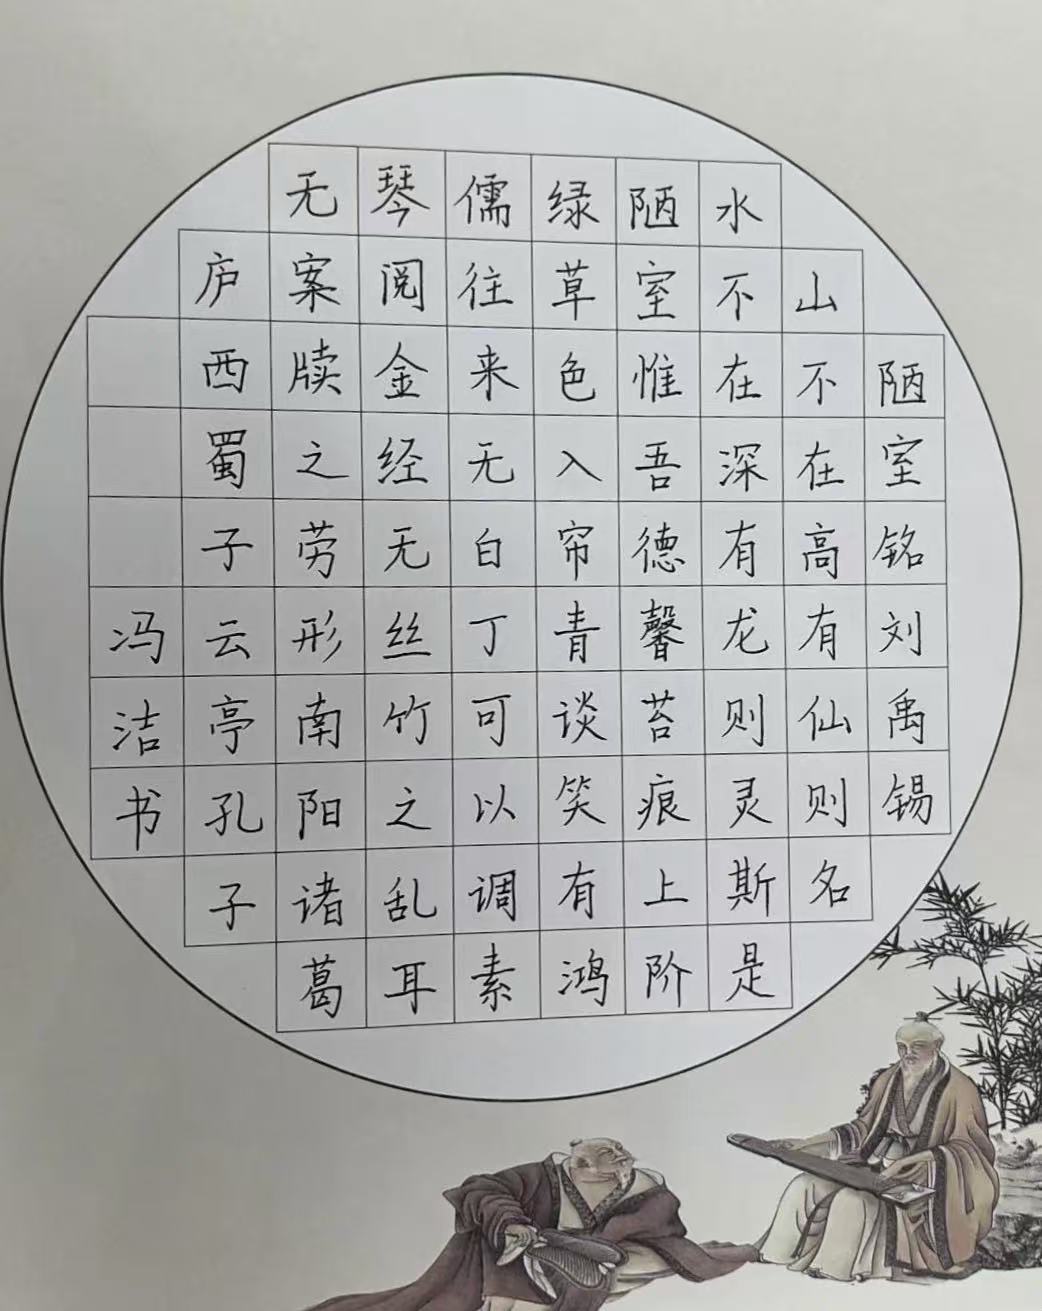 陋室铭刘禹锡
山不在高有仙则名
水不在深有龙则灵斯是
陋室惟吾德馨苔痕上阶
绿草色入帘青谈笑有鸿
儒往来无白丁可以调素
琴阅金经无丝竹之乱耳
无案牍之劳形南阳诸葛
庐西蜀子云亭孔子
冯洁书